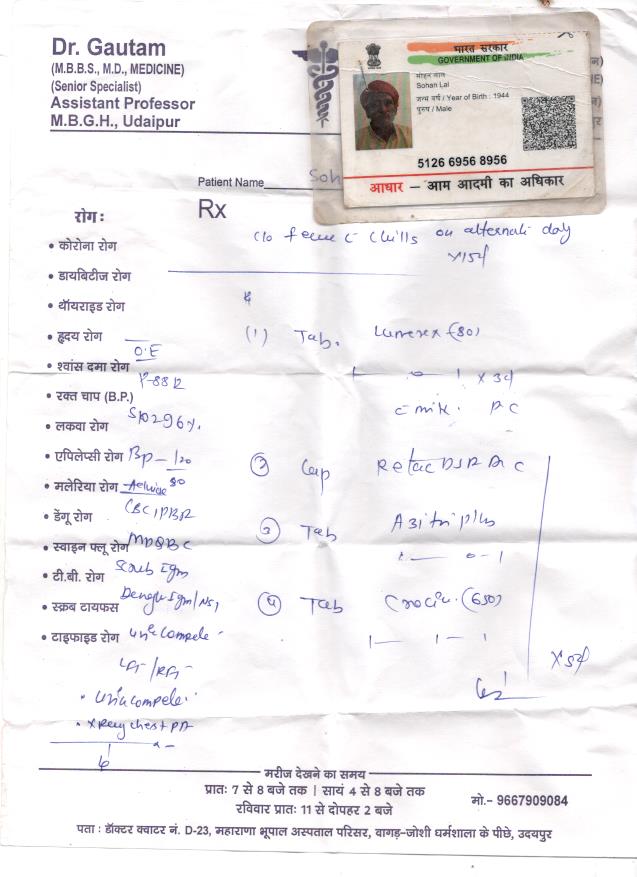 Dr. Gautam
(M.B.B.S., M.D., MEDICINE)
(Senior Specialist)
Assistant Professor
M.B.G.H., Udaipur
भारत सरकार
GOVERNMENT OF INDIA
Sohan Lal
जन्म वर्ष / Year of Birth : 1944
पुरुष / Male
5126 6956 8956
आधार – आम आदमी का अधिकार
Patient Name Soh
Rx
c/o fever c chills on alternate day
रोग :
• कोरोना रोग
• डायबिटीज रोग
• थॉयराइड रोग
• हृदय रोग
(1) Tab. (80)
O.E
• श्वांस दमा रोग
P-88
• रक्त चाप (B.P.)
c milk. PC
SpO2 96%
• लकवा रोग
• एपिलेप्सी रोग BP – 120
② Cap DSR
80
• मलेरिया रोग Advice
• डेंगू रोग CBC, PBR
③ Tab Azitri plus
• स्वाइन फ्लू रोग
1 – 0 – 1
• टी.बी. रोग Scrub IgM
• स्क्रब टायफस Dengue IgM/NS1
④ Tab Crocin (650)
• टाइफाइड रोग Urine complete
1 – 1 – 1
x5d
• Urine complete
• X Ray chest PA
मरीज देखने का समय
प्रातः 7 से 8 बजे तक | सायं 4 से 8 बजे तक
रविवार प्रातः 11 से दोपहर 2 बजे
मो.- 9667909084
पता : डॉक्टर क्वाटर नं. D-23, महाराणा भूपाल अस्पताल परिसर, वागड़-जोशी धर्मशाला के पीछे, उदयपुर